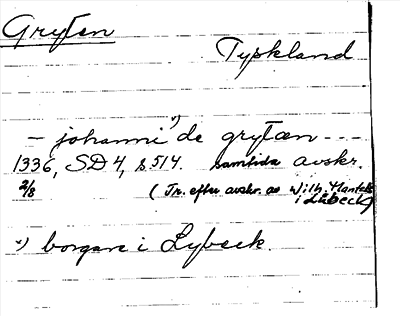 Gryten
Tyskland
- johanni x) de grytæn ---
1336, SD 4, s. 514. samtida avskr.
2/8 (Tr. efter avskr. av Wilh. Mantels
i Lübeck)
x) borgare i Lybeck.